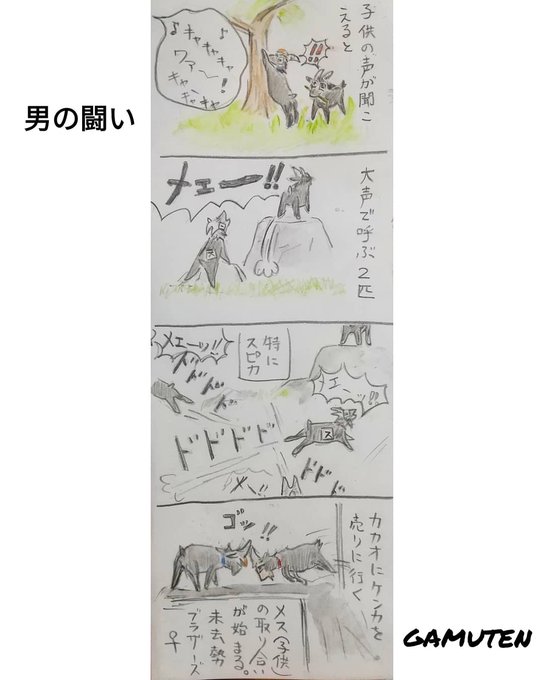 男の闘い
子供の声が聞こ
えると
!!
♪
キャキャキャ
ワァ〜!
キャキャキャ
♪
大声で呼ぶ2匹
メェー!!
ス
特に
スピカ
メェーッ!!
ドドドド
メェ〜!!
ス
ドドドド
ドドド
メ〜!!
カカオにケンカを
売りに行く
ゴッ!!
メス(子供)
の取り合い
が始まる。
未去勢
ブラザーズ
GAMUTEN